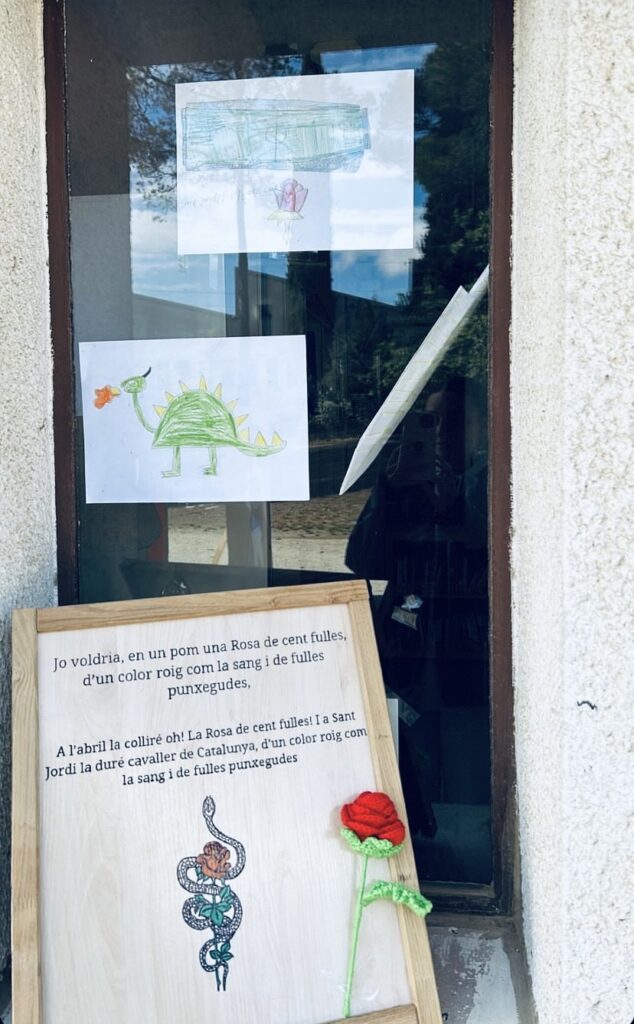 Jo voldria, en un pom una Rosa de cent fulles,
d'un color roig com la sang i de fulles
punxegudes,
A l'abril la colliré oh! La Rosa de cent fulles! I a Sant
Jordi la duré cavaller de Catalunya, d'un color roig com
la sang i de fulles punxegudes